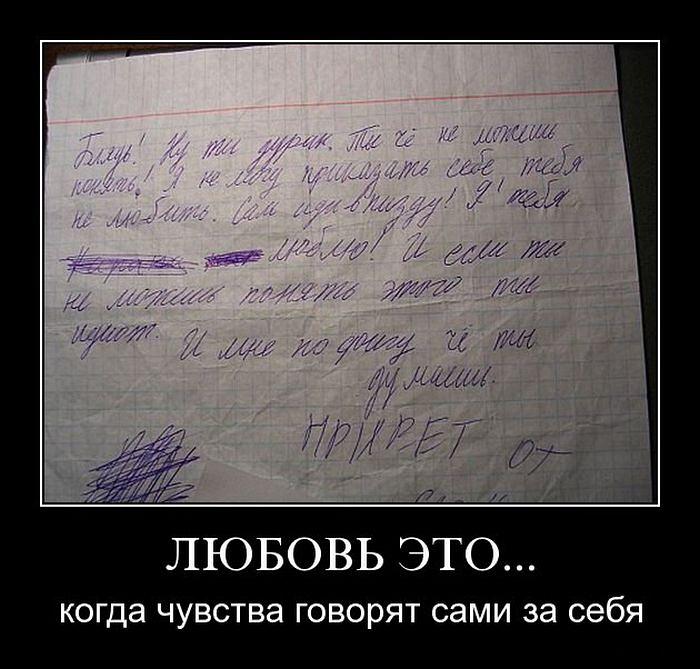 Блядь! Ну ты дурак. Ты чё не можешь
понять! Я не могу приказать себе тебя
не любить. Сам иди в пизду! Я тебя
люблю! И если ты
не можешь понять этого ты
идиот. И мне по фигу чё ты
думаешь.
ПРИВЕТ от
ЛЮБОВЬ ЭТО...
когда чувства говорят сами за себя